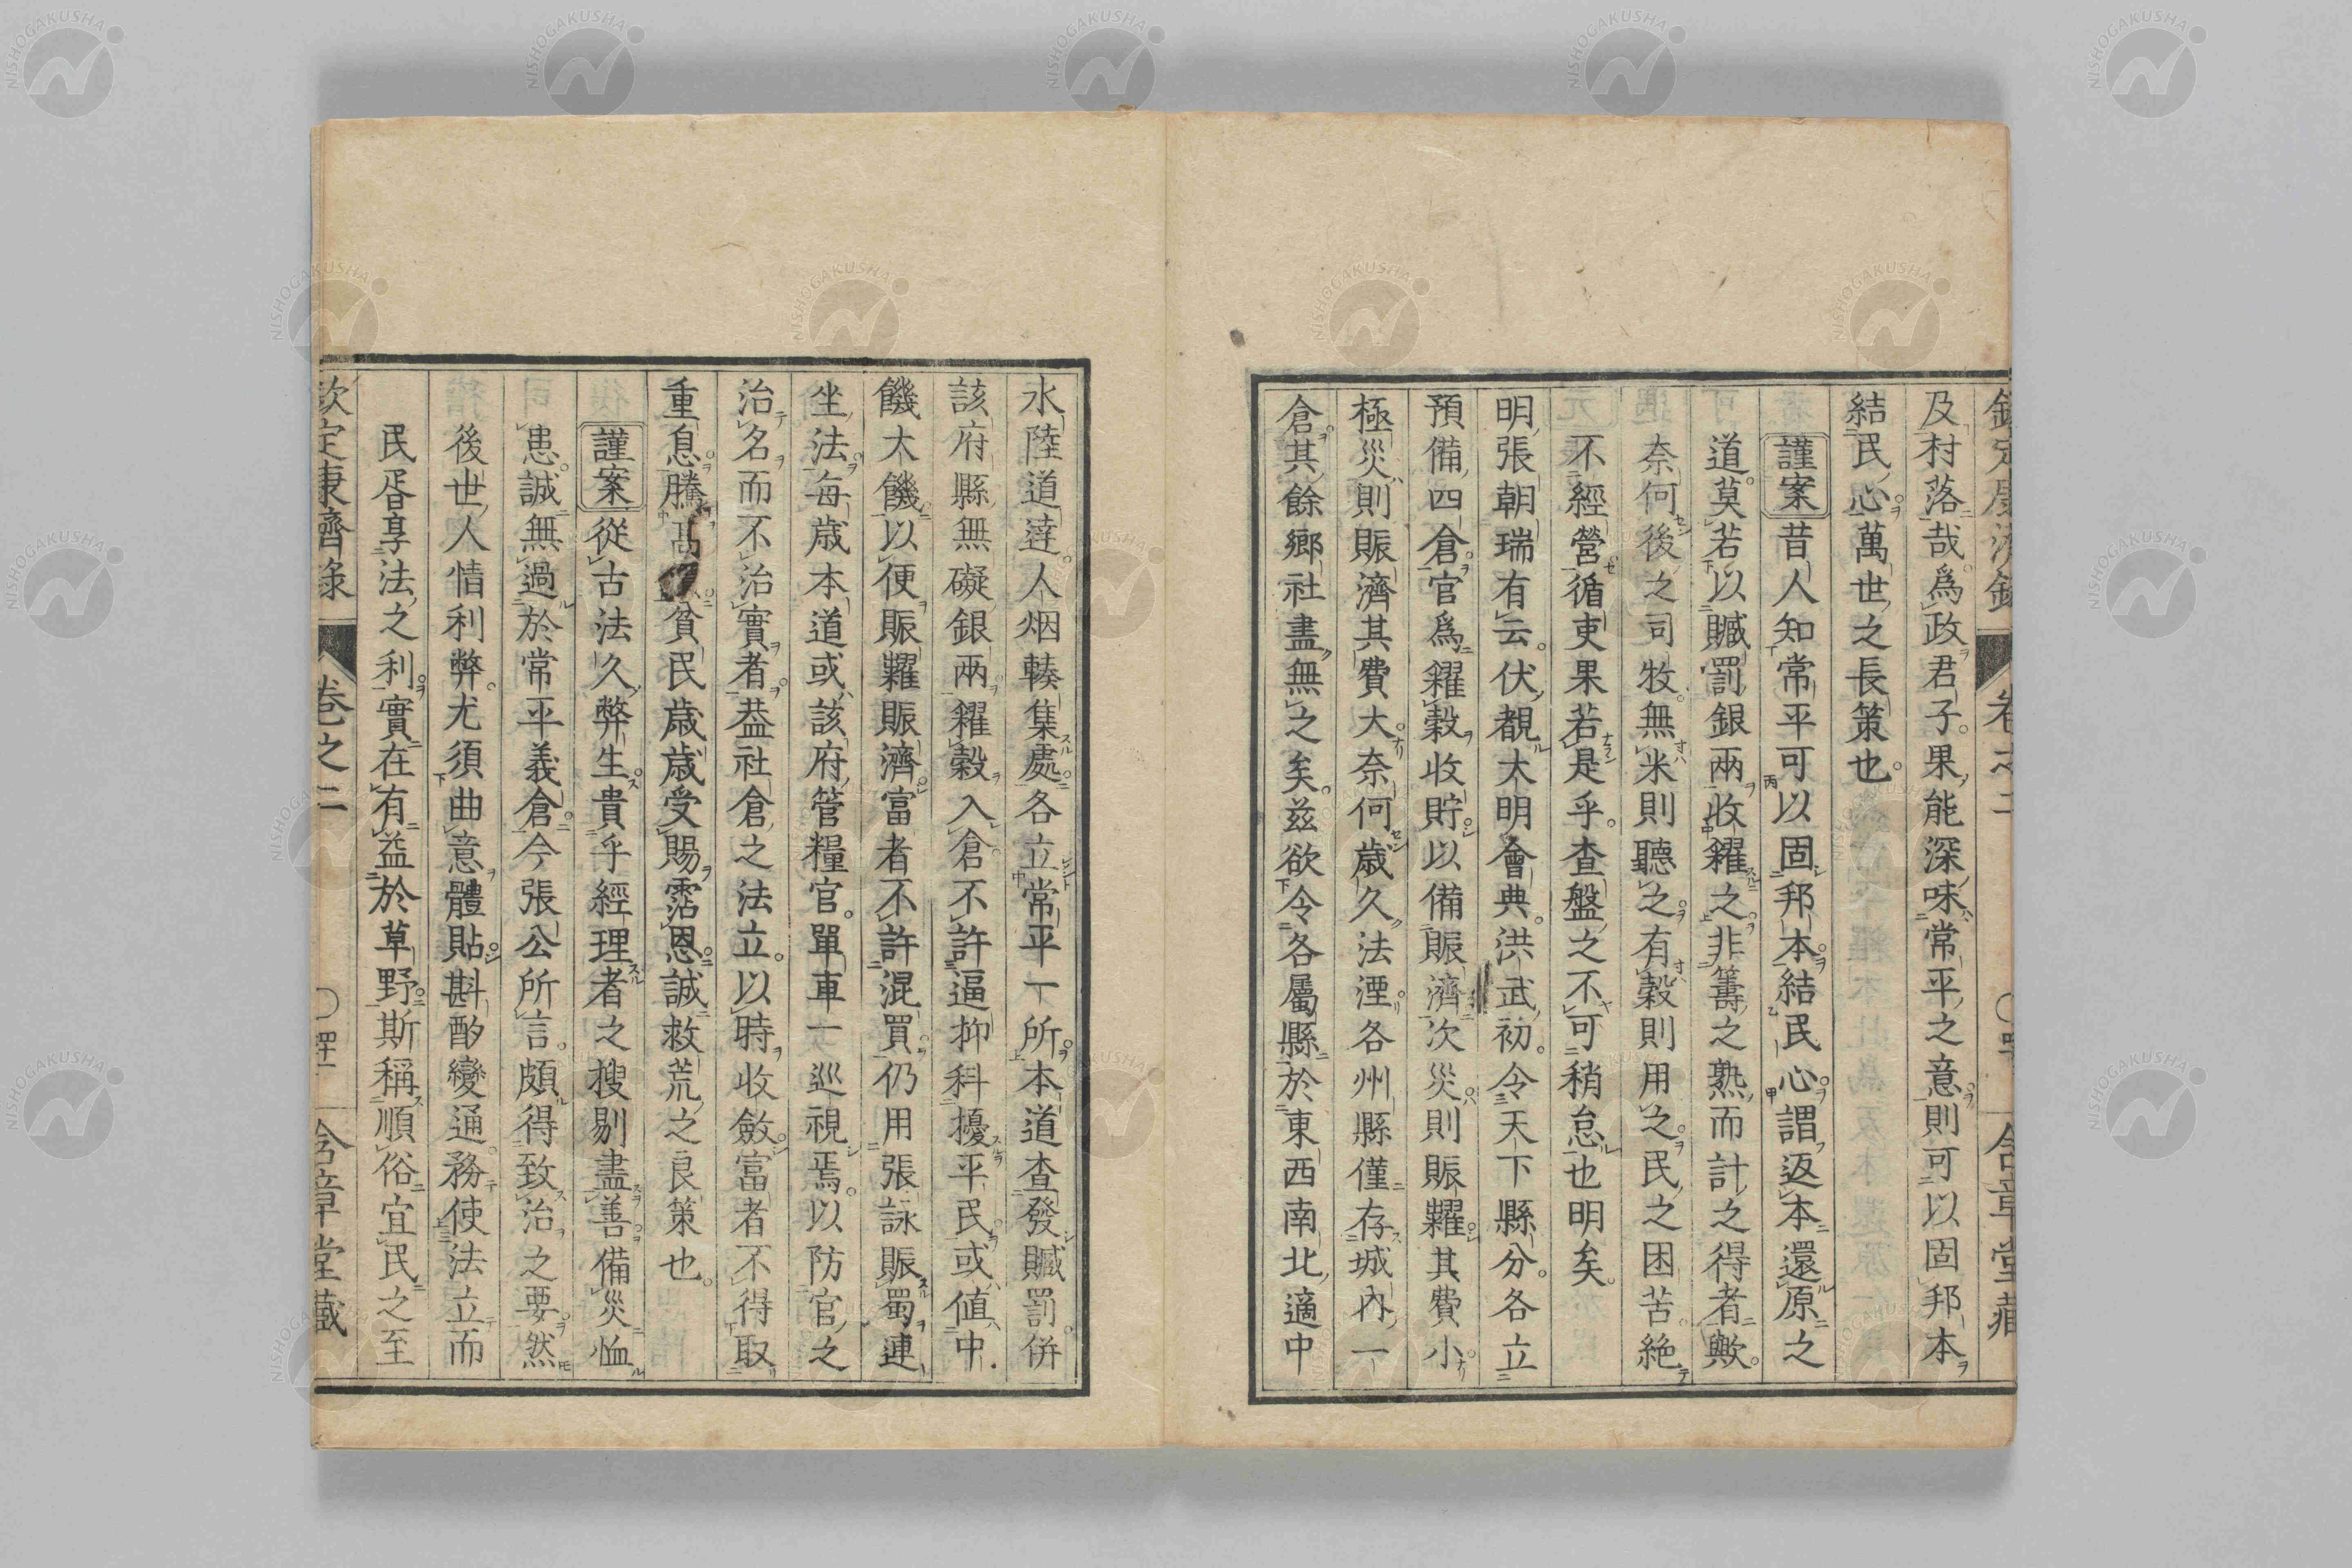 欽定康濟録 卷之二 ○四十 含章堂藏
及村落哉。爲政君子。果能深味常平之意。則可以固邦本
結民心。萬世之長策也。
謹案昔人知常平可以固邦本。結民心。謂返本還原之
道。莫若以贓罰銀兩收糴之。非籌之熟而計之得者歟。
奈何後之司牧。無米則聽之。有穀則用之。民之困苦。絶
不經營。循吏果若是乎。查盤之不可稍怠也明矣。
明張朝瑞有云。伏覩大明會典。洪武初。令天下縣分。各立
預備四倉。官爲糴穀收貯。以備賑濟。次災則賑糶。其費小。
極災則賑濟。其費大。奈何歲久法湮。各州縣僅存城內一
倉。其餘鄉社盡無之矣。茲欲令各屬縣於東西南北適中
水陸道達。人烟輳集處。各立常平一所。本道查發贓罰。併
該府縣無礙銀兩。糴穀入倉。不許逼抑科擾平民。或值中
饑大饑。以便賑糶賑濟。富者不許混買。仍用張詠賑蜀連
坐法。每歲本道或該府管糧官。單車一巡視焉。以防官之
治名而不治實者。葢社倉之法立。以時收斂。富者不得取
重息。騰高貧民歲歲受賜霑恩。誠救荒之良策也。
謹案從古法久弊生。貴乎經理者之搜剔盡善。備災恤
患。誠無過於常平義倉。今張公所言。頗得致治之要。然
後世人情利弊。尤須曲意體貼。斟酌變通。務使法立而
民胥享法之利。實在有益於草野。斯稱順俗宜民之至
欽定康濟録 卷之二 ○四十一 含章堂藏
NISHOGAKUSHA